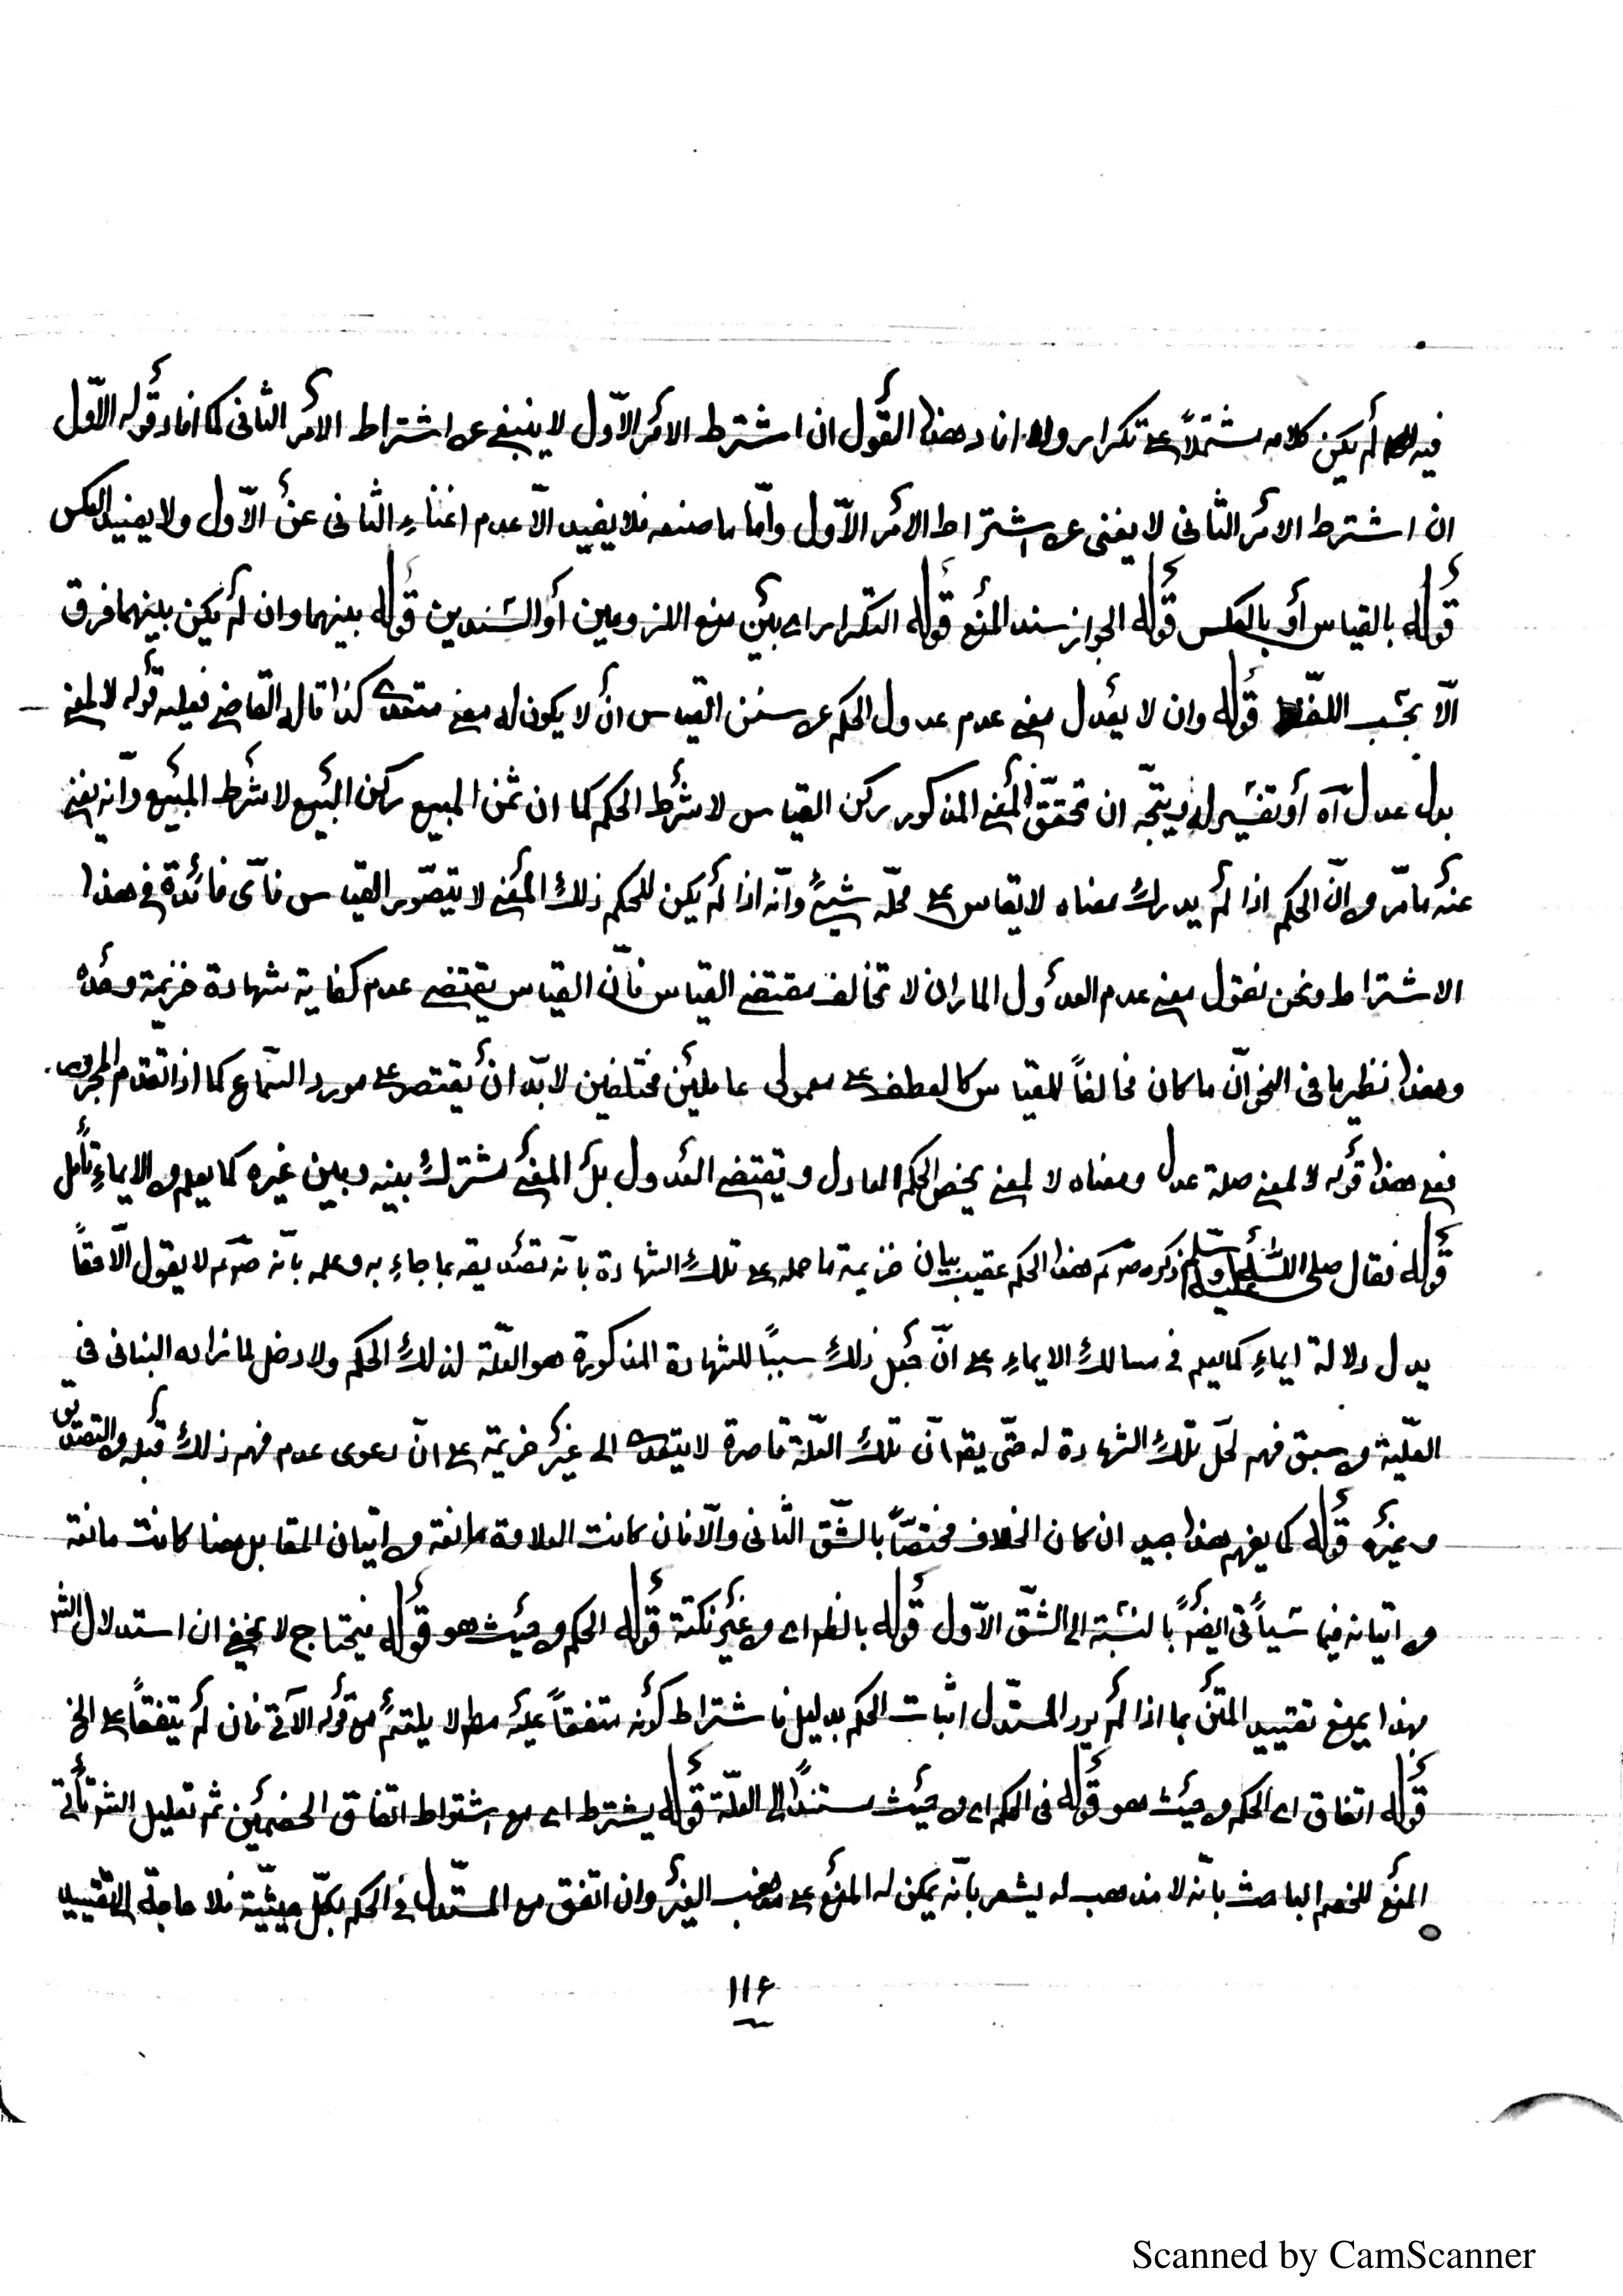 فيه لم يكن كلامه مشتملاً على تكرار ولو افاد هذا القول ان اشترط الامر الاوّل لا ينبغي عن اشتراط الامر الثاني كما افاد قوله الاوّل
ان اشترط الامر الثاني لا يغني عن اشتراط الامر الاوّل وامّا ما صنعه فلا يفيد الاّ عدم اغناء الثاني عن الاوّل ولا يفيد العكس
قوله بالقياس أو بالعكس قوله الجواز سند المنع قوله التكرار اى بين منع اللزومين أو السندين قوله بينهما وان لم يكن بينهما فرق
الاّ بحسب اللفظ قوله وان لا يعدل معنى عدم عدول الحكم عن سنن القياس أن لا يكون له معنى متعدى كذا قال القاضي فعليه قوله لا لمعنى
بدل عدل آه أو تفسير له ويتجّه ان تحقق المعنى المذكور ركن القياس لا شرط الحكم كما ان ثمن المبيع ركن البيع لا شرط المبيع وانّه يغني
عنه ما مرّ من انّ الحكم اذا لم يدرك معناه لا يقاس على محلّه شيئ وانّه اذا لم يكن للحكم ذلك المعنى لا يتصوّر القياس فأىّ فائدة في هذا
الاشتراط ونحن نقول معنى عدم العدول المار ان لا تخالف مقتضى القياس فانّ القياس يقتضي عدم كفاية شهادة خزيمة وحده
وهذا نظير ما في النحو انّ ما كان مخالفاً للقياس كالعطف على معمولى عاملين مختلفين لا بدّ ان يقتصر على مورد السّماع كما اذا تقدم المجرور
فعلى هذا قوله لا لمعنى صلة عدل ومعناه لا لمعنى يخص الحكم العادل ويقتضي العدول بل المعنى مشترك بينه وبين غيره كما يعلم من الايماء تأمل
قوله فقال صلى الله عليه وسلم ذكره صوم هذا الحكم عقيب بيان خزيمة ما حمله على تلك الشهادة بانّه تصديقه بما جاء به وعلمه بانّه صوم لا يقول الاّ حقاً
يدل دلالة ايماء كما يعلم في مسالك الايماء على انّ جعل ذلك سبباً للشهادة المذكورة هو العلّة لذلك الحكم ولا دخل لما زاده البناني في
العلّية من سبق فهم لحلّ تلك الشهادة له حتّى يقر انّ تلك العلّة قاصرة لا يتعدى الى غير خزيمة على انّ دعوى عدم فهم ذلك قبله من التصديق
من غيره قوله كما يفهم هذا جيد ان كان الخلاف مختصّاً بالشّق الثاني والاّ فان كانت العلاوة مانعة من اتيان المقابل هنا كانت مانعة
من اتيانه فيما سيأتي ايضاً بالنسبة الى الشق الاوّل قوله بالنظر اى من غير نكتة قوله الحكم من حيث هو قوله فيحتاج لا يخفى ان استدلال الشر
بهذا يمنع تقييد المتن بما اذا لم يرد المستدل اثبات الحكم بدليل فاشتراط كونه متفقاً عليه مط لا يلتئم مع قوله الآتي فان لم يتفقا على الخ
قوله اتفاق اى الحكم من حيث هو قوله في الحكم اى من حيث مستنداً الى العلّة قوله يشترط اى مع اشتراط اتفاق الخصمين ثم تعليل الشر تأتي
المنع للخصم الباحث بانّه لا مذهب له يشعر بانّه يمكن له المنع على مذهب الغير وان اتفق مع المستدل في الحكم بكلّ حيثيّة فلا حاجة الى تقييد
١١٦
Scanned by CamScanner